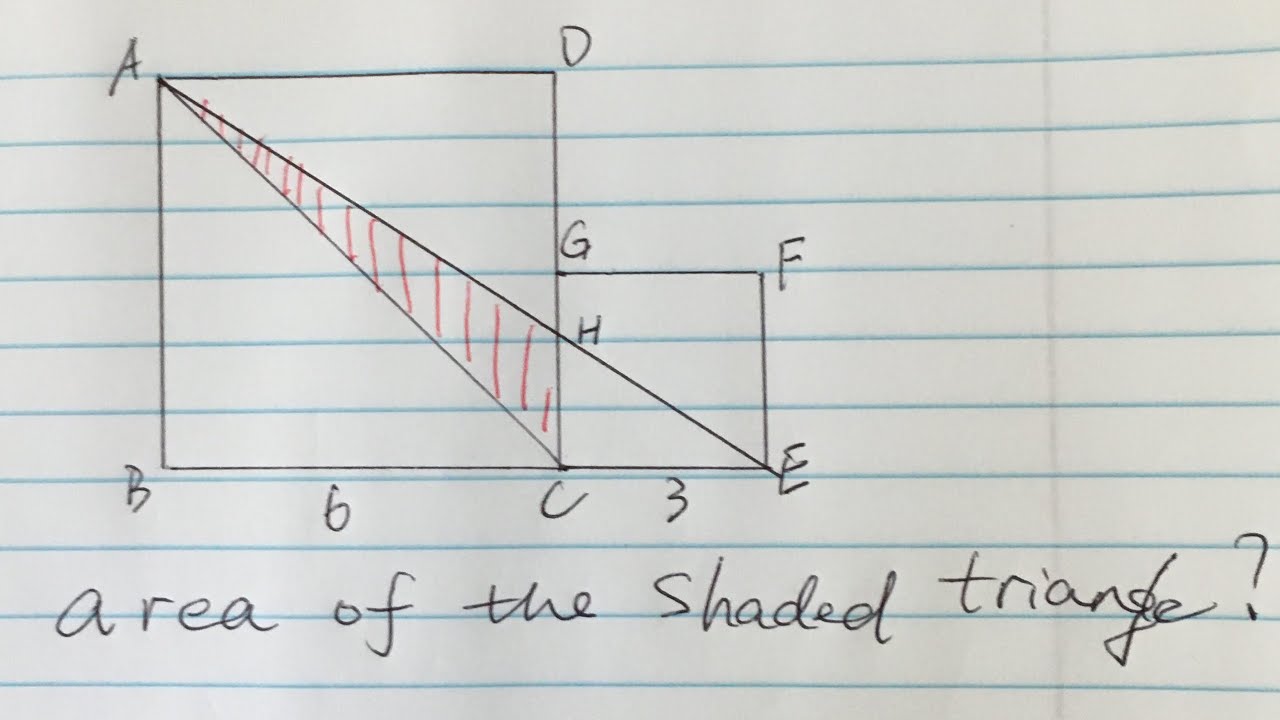 A D
G F
H
B C E
6 3
area of the shaded triangle?